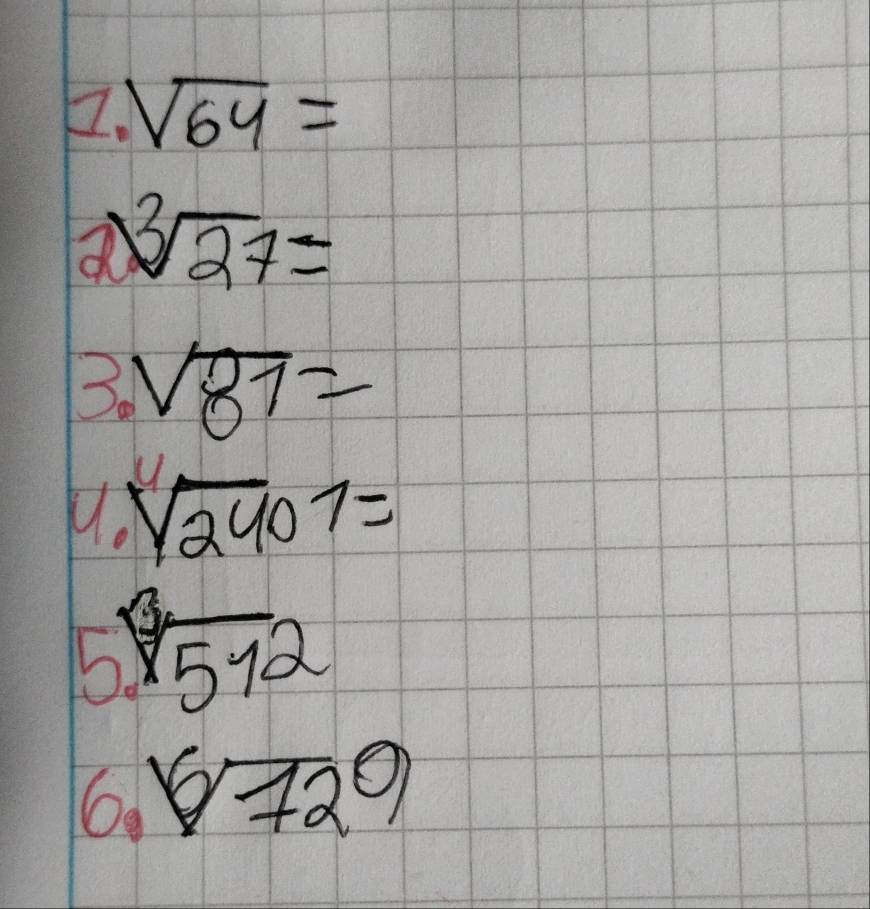 1. √64 =
2. ∛27 =
3. √81 =
4. ∜2401 =
5. √512
6. ⁶√729